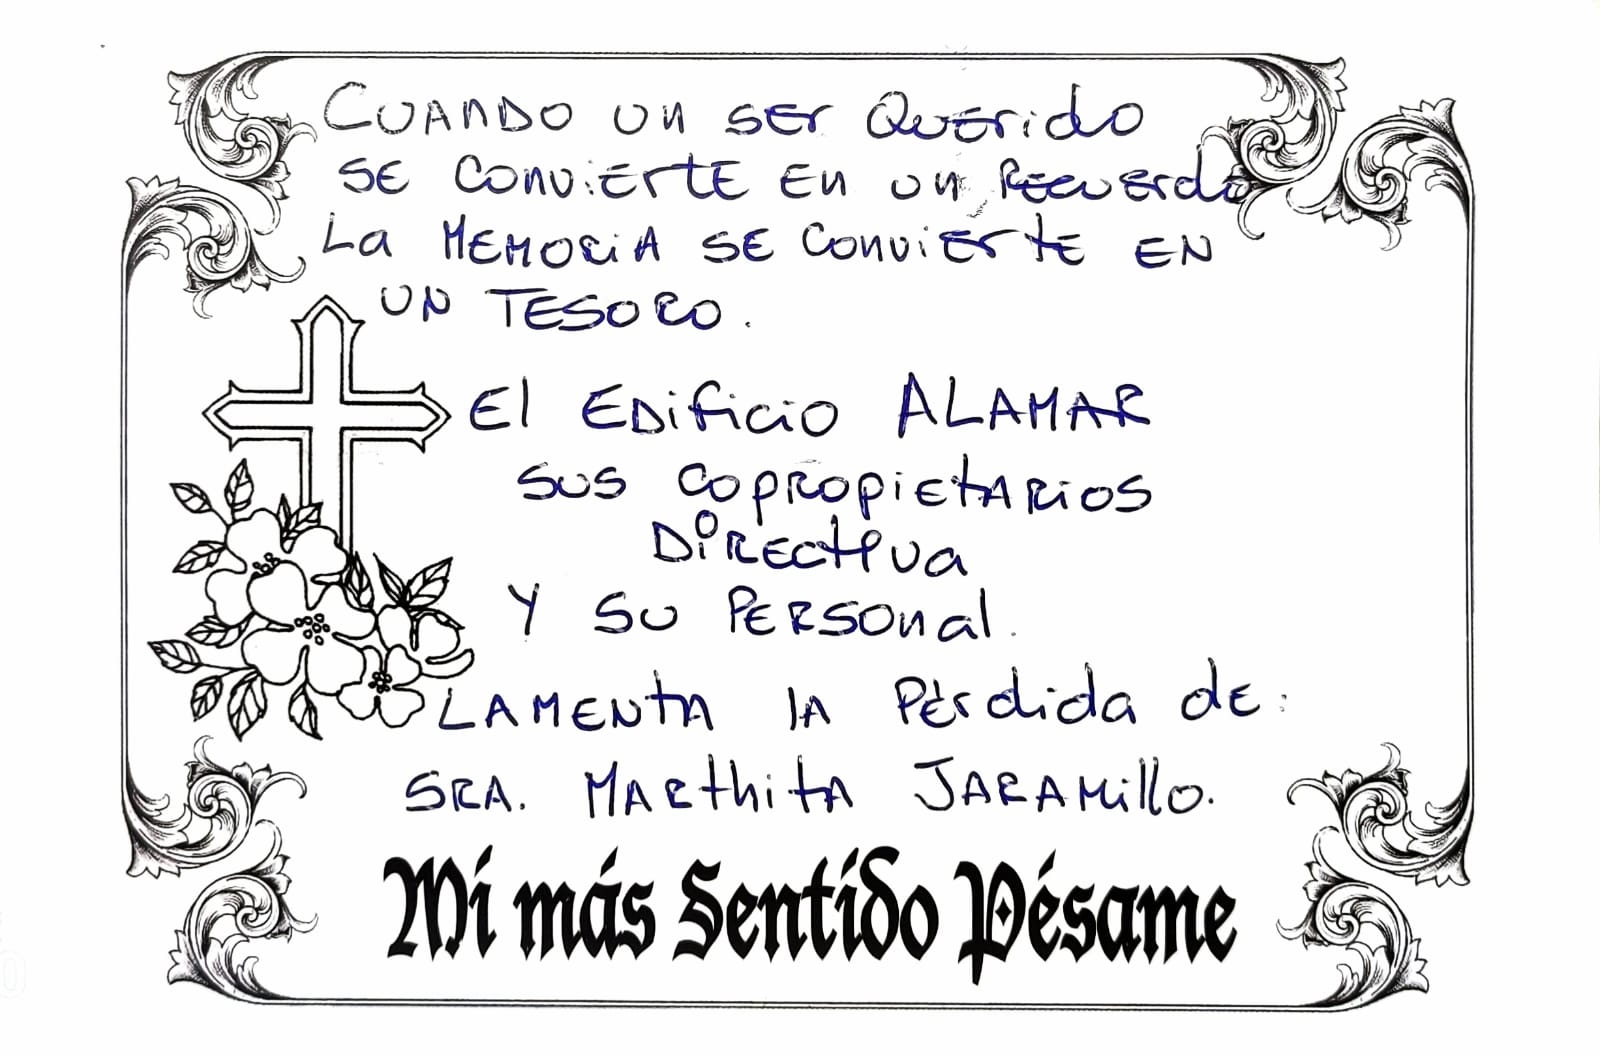 Cuando un ser Querido
se convierte en un Recuerdo
La Memoria se convierte en
un Tesoro.
El Edificio ALAMAR
sus copropietarios
Directiva
Y su Personal.
Lamenta la Pérdida de:
SRA. Marthita Jaramillo.
Mi más Sentido Pésame